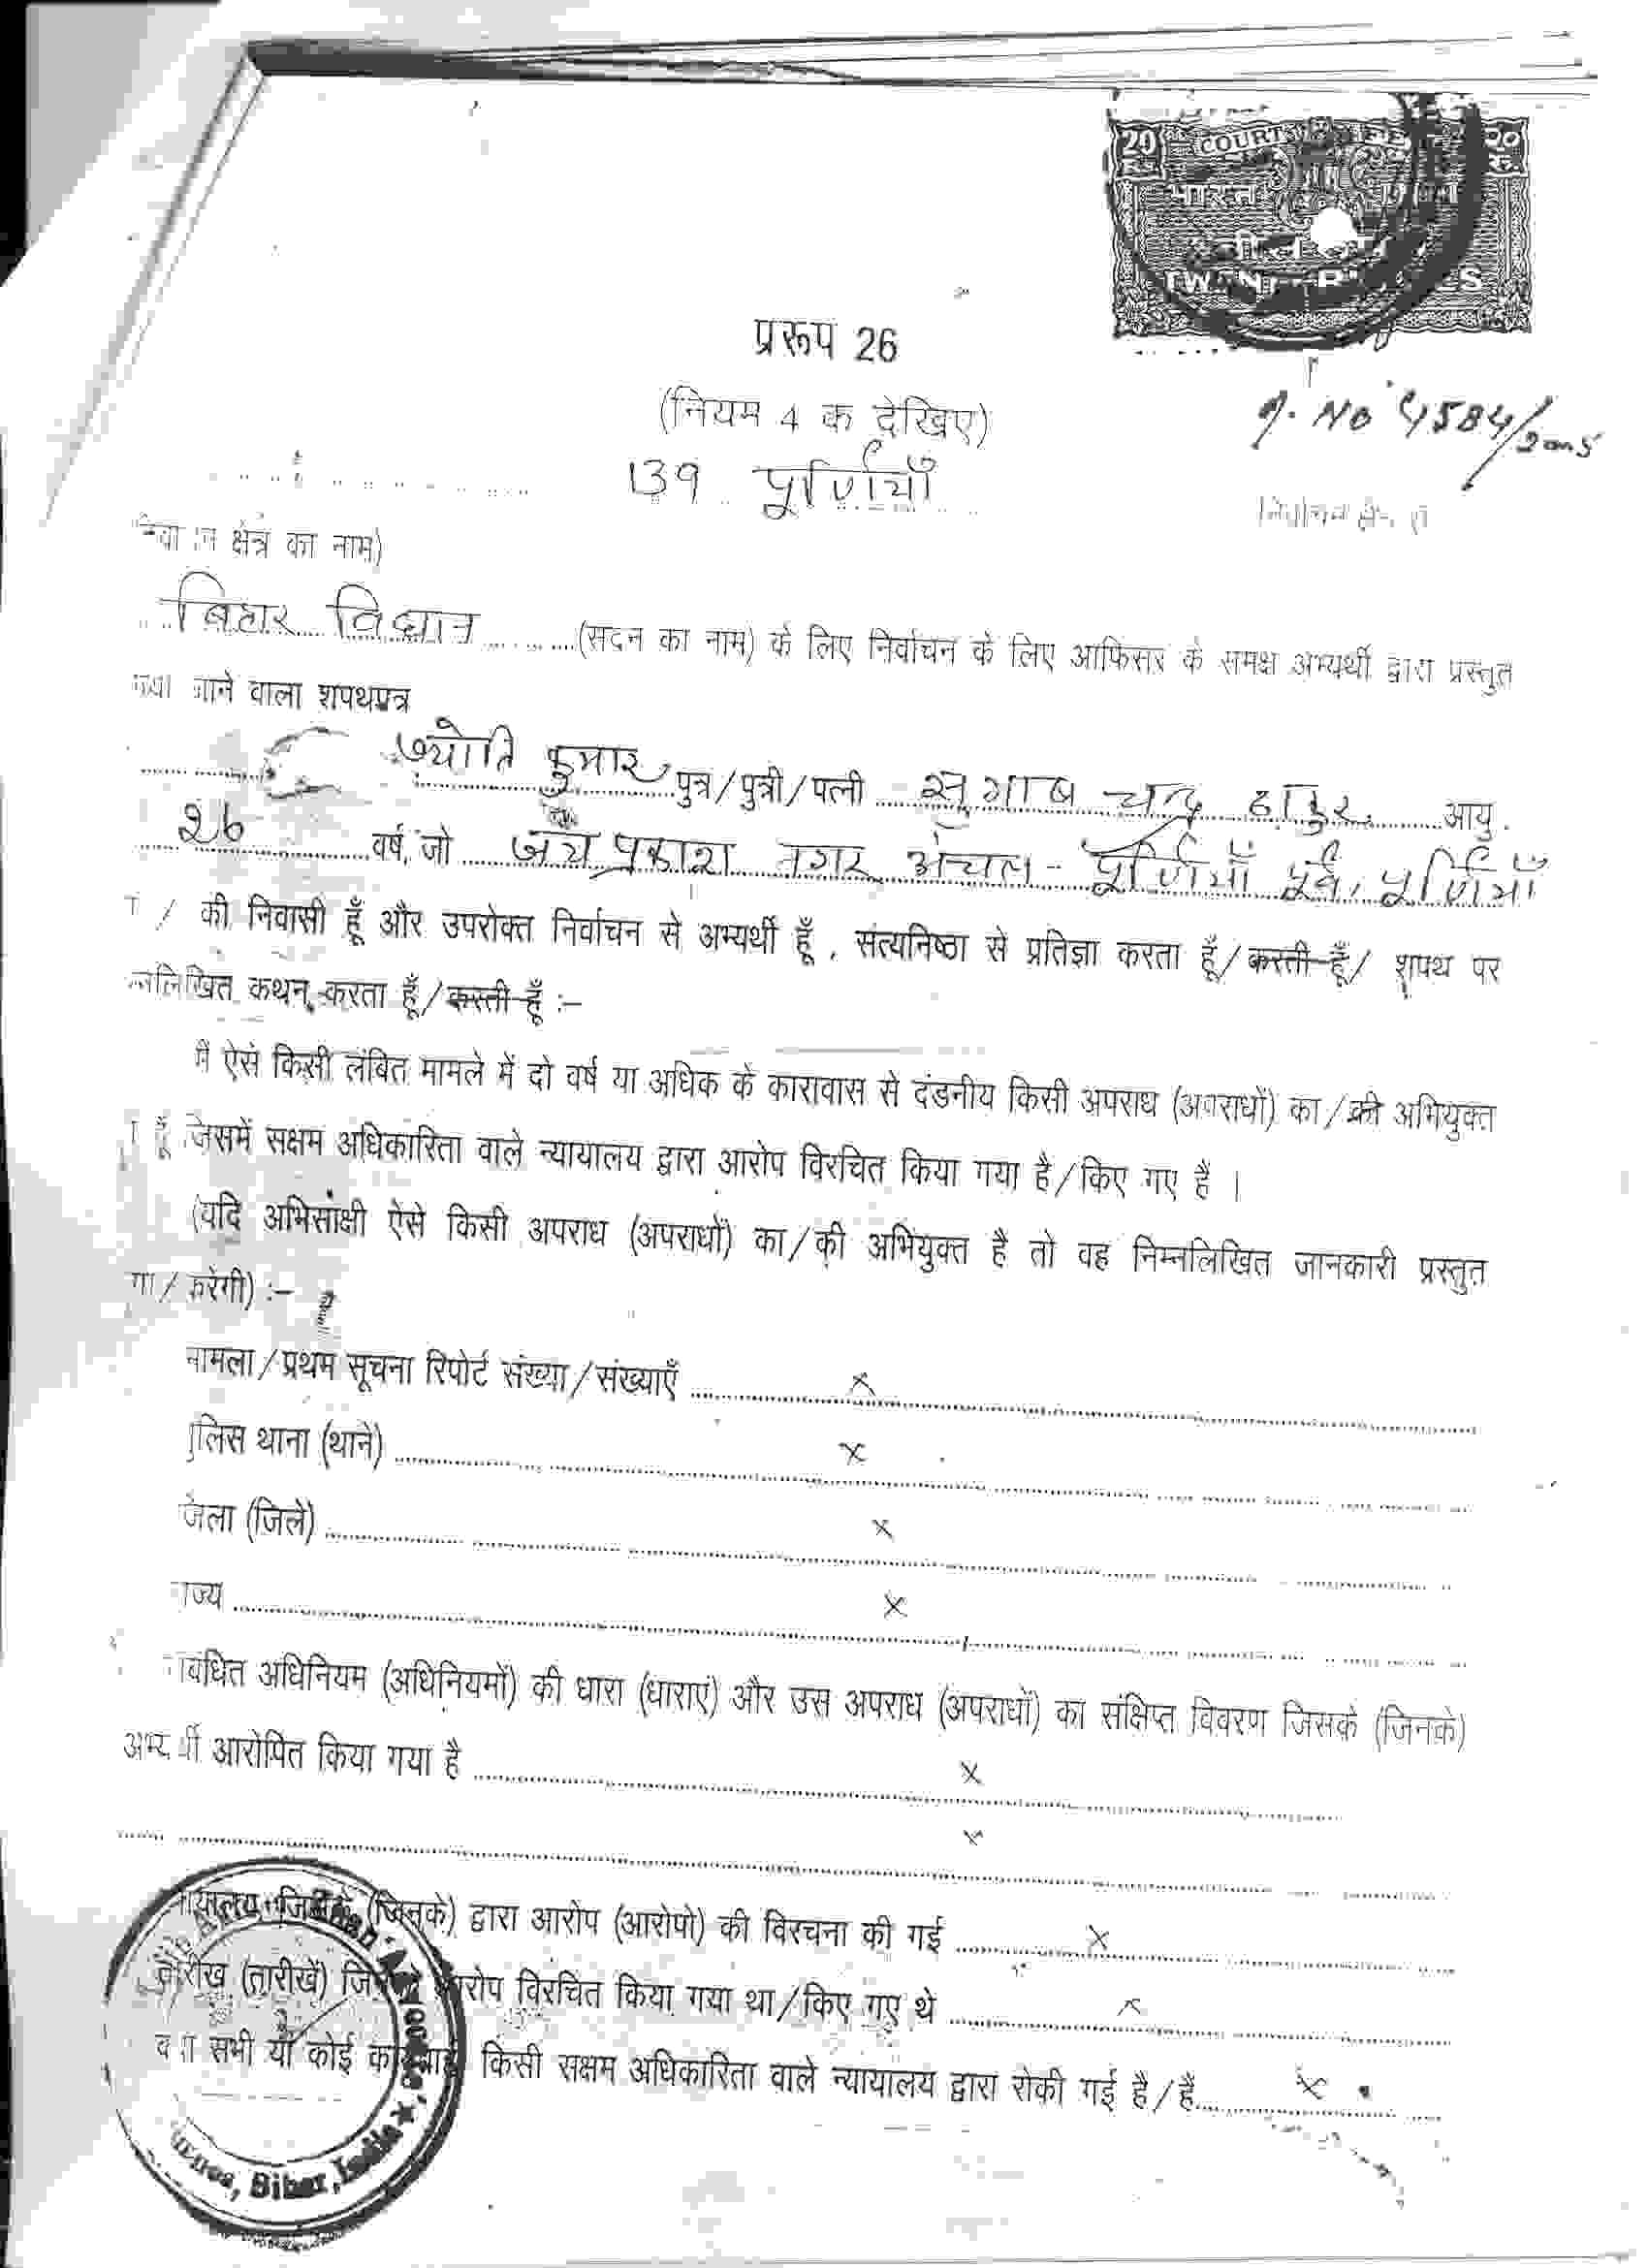 20 COURT २०
रु. रु.
भारत
TWENTY RUPEES
प्ररूप 26
(नियम 4 क देखिए)
No 4584/2005
139 पूर्णियाँ
क्षेत्र का नाम)
बिहार विधान (सदन का नाम) के लिए निर्वाचन के लिए आफिसर के समक्ष अभ्यर्थी द्वारा प्रस्तुत
जाने वाला शपथपत्र
ज्योति कुमार पुत्र/पुत्री/पत्नी चन्द्र ठाकुर आयु
26 वर्ष, जो जय प्रकाश नगर अंचल - पूर्णियाँ पूर्व, पूर्णियाँ
/ की निवासी हूँ और उपरोक्त निर्वाचन से अभ्यर्थी हूँ, सत्यनिष्ठा से प्रतिज्ञा करता हूँ/करती हूँ/ शपथ पर
कथन करता हूँ/करती हूँ :–
मैं ऐसे किसी लंबित मामले में दो वर्ष या अधिक के कारावास से दंडनीय किसी अपराध (अपराधों) का/की अभियुक्त
हूँ जिसमें सक्षम अधिकारिता वाले न्यायालय द्वारा आरोप विरचित किया गया है/किए गए हैं ।
(यदि अभिसाक्षी ऐसे किसी अपराध (अपराधों) का/की अभियुक्त है तो वह निम्नलिखित जानकारी प्रस्तुत
/करेगी) :–
मामला/प्रथम सूचना रिपोर्ट संख्या/संख्याएँ x
पुलिस थाना (थाने) x
जिला (जिले) x
राज्य x
अधिनियम (अधिनियमों) की धारा (धाराएं) और उस अपराध (अपराधों) का संक्षिप्त विवरण जिसके (जिनके)
अभ्यर्थी आरोपित किया गया है x
x
(जिनके) द्वारा आरोप (आरोपों) की विरचना की गई x
तारीख (तारीखें) आरोप विरचित किया गया था/किए गए थे x
सभी या कोई किसी सक्षम अधिकारिता वाले न्यायालय द्वारा रोकी गई है/हैं x
Bihar, India